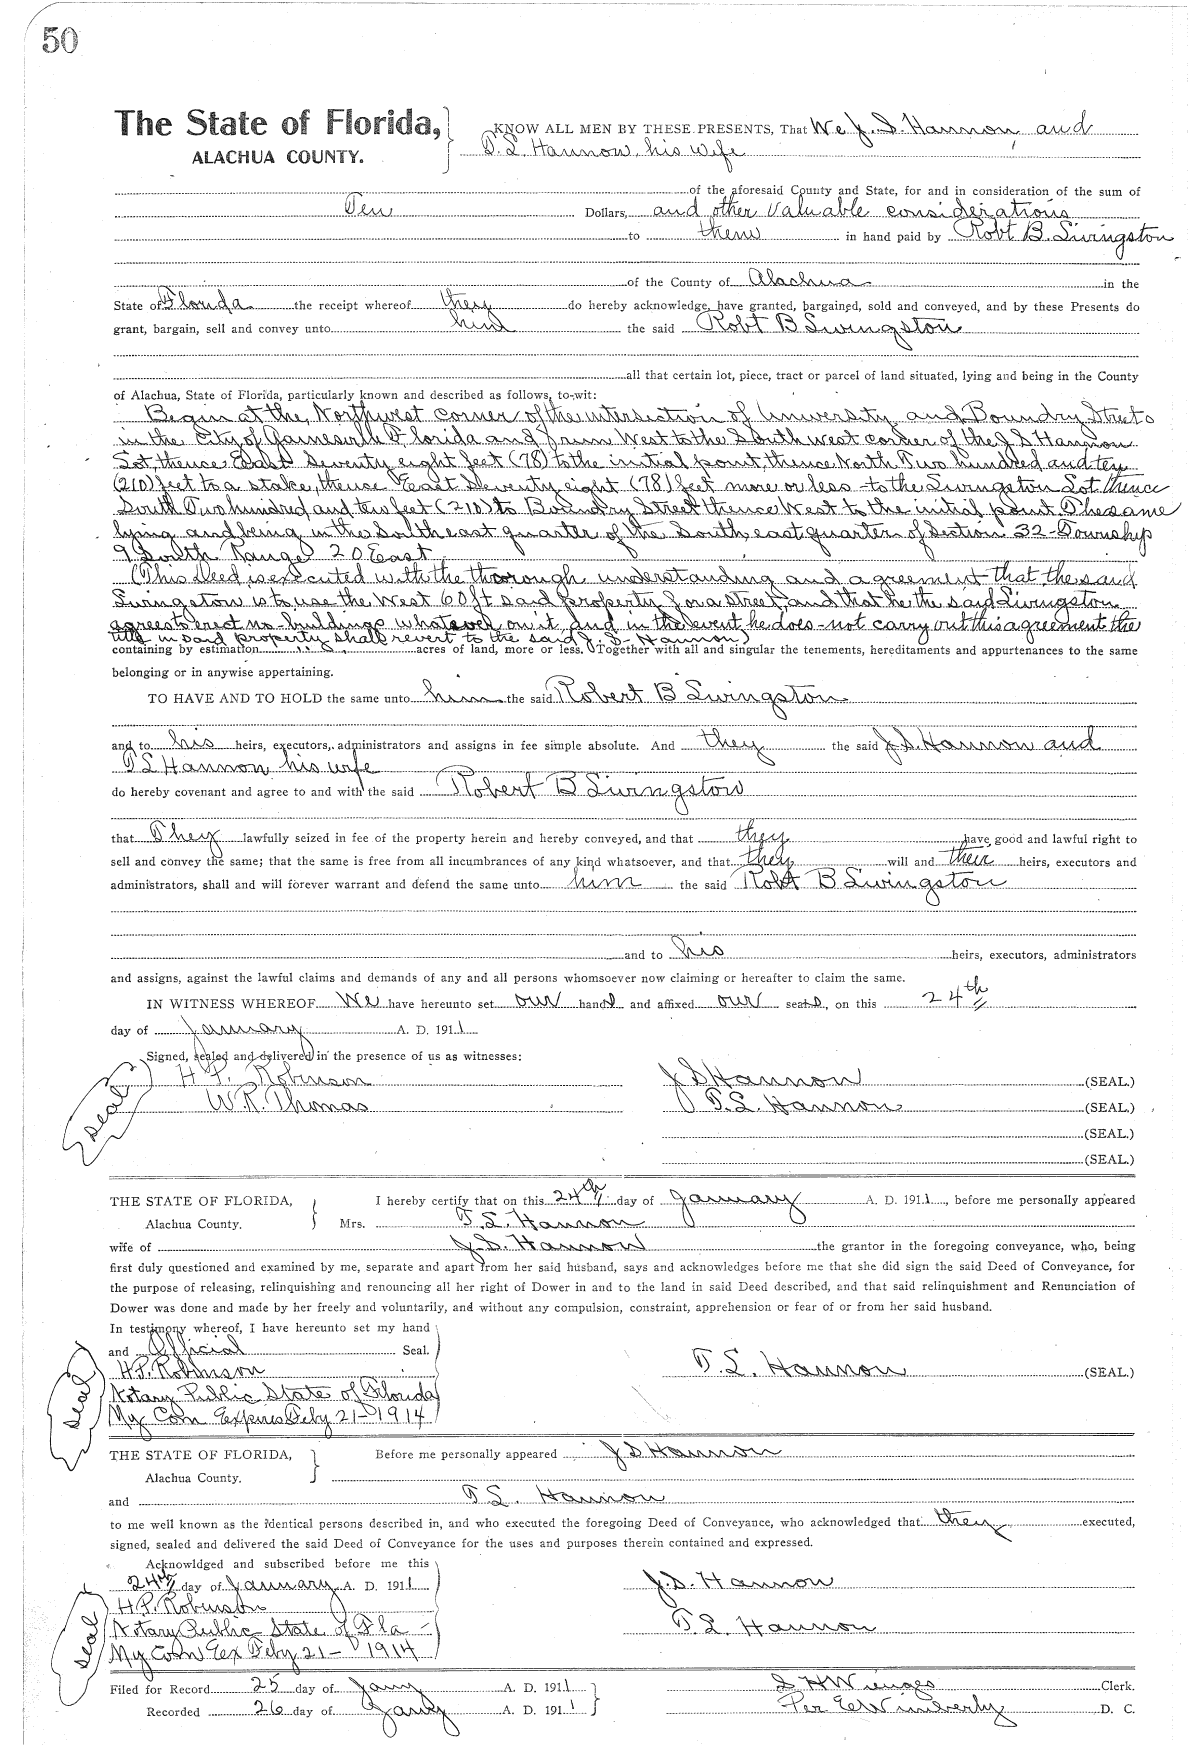 50
The State of Florida,
ALACHUA COUNTY.
KNOW ALL MEN BY THESE PRESENTS, That We J. S. Hannon and
T. L. Hannon his wife
of the aforesaid County and State, for and in consideration of the sum of
Ten Dollars, and other valuable considerations
to them in hand paid by Robt B. Livingston
of the County of Alachua in the
State of Florida the receipt whereof they do hereby acknowledge, have granted, bargained, sold and conveyed, and by these Presents do
grant, bargain, sell and convey unto him the said Robt B Livingston
all that certain lot, piece, tract or parcel of land situated, lying and being in the County
of Alachua, State of Florida, particularly known and described as follows, to-wit:
Begin at the Northwest corner of the intersection of University and Boundry Streets
in the City of Gainesville Florida and run West to the South west corner of the J S Hannon
Lot, thence East Seventy eight feet (78) to the initial point, thence North Two hundred and ten
(210) feet to a stake, thence East Seventy eight (78) feet more or less to the Livingston Lot thence
South Two hundred and ten feet (210) to Boundry Street thence West to the initial point. The same
lying and being in the South east quarter of the South east quarter of Section 32 Township
9 South Range 20 East
(This deed is executed with the thorough understanding and agreement that the said
Livingston is to use the West 60 ft said property for a street and that he the said Livingston
agrees to erect no buildings whatever on it and in the event he does not carry out this agreement the
title in said property shall revert to the said J. S. Hannon)
containing by estimation acres of land, more or less. Together with all and singular the tenements, hereditaments and appurtenances to the same
belonging or in anywise appertaining.
TO HAVE AND TO HOLD the same unto him the said Robert B Livingston
and to his heirs, executors, administrators and assigns in fee simple absolute. And they the said J. S. Hannon and
T L Hannon his wife
do hereby covenant and agree to and with the said Robert B Livingston
that They lawfully seized in fee of the property herein and hereby conveyed, and that they have good and lawful right to
sell and convey the same; that the same is free from all incumbrances of any kind whatsoever, and that they will and their heirs, executors and
administrators, shall and will forever warrant and defend the same unto him the said Robt B Livingston
and to his heirs, executors, administrators
and assigns, against the lawful claims and demands of any and all persons whomsoever now claiming or hereafter to claim the same.
IN WITNESS WHEREOF We have hereunto set our hand and affixed our seals, on this 24th
day of January A. D. 1911
Signed, sealed and delivered in the presence of us as witnesses:
H. P. Robinson J S Hannon (SEAL.)
W. R. Thomas T. L. Hannon (SEAL.)
Seal
(SEAL.)
(SEAL.)
THE STATE OF FLORIDA, I hereby certify that on this 24th day of January A. D. 1911, before me personally appeared
Alachua County. Mrs. T. L. Hannon
wife of J. S. Hannon the grantor in the foregoing conveyance, who, being
first duly questioned and examined by me, separate and apart from her said husband, says and acknowledges before me that she did sign the said Deed of Conveyance, for
the purpose of releasing, relinquishing and renouncing all her right of Dower in and to the land in said Deed described, and that said relinquishment and Renunciation of
Dower was done and made by her freely and voluntarily, and without any compulsion, constraint, apprehension or fear of or from her said husband.
In testimony whereof, I have hereunto set my hand
and Official Seal.
H. P. Robinson T. L. Hannon (SEAL.)
Notary Public State of Florida
Seal
My Com Expires Feby 21-1914
THE STATE OF FLORIDA, Before me personally appeared J S Hannon
Alachua County.
and T. L. Hannon
to me well known as the identical persons described in, and who executed the foregoing Deed of Conveyance, who acknowledged that they executed,
signed, sealed and delivered the said Deed of Conveyance for the uses and purposes therein contained and expressed.
Acknowldged and subscribed before me this
24th day of January A. D. 1911 J. S. Hannon
H. P. Robinson
Notary Public State of Fla T. L. Hannon
Seal
My Com Ex Feby 21- 1914
Filed for Record 25 day of Jany A. D. 1911 S H Wienges Clerk.
Recorded 26 day of Jany A. D. 1911 Per E W Wimberly D. C.